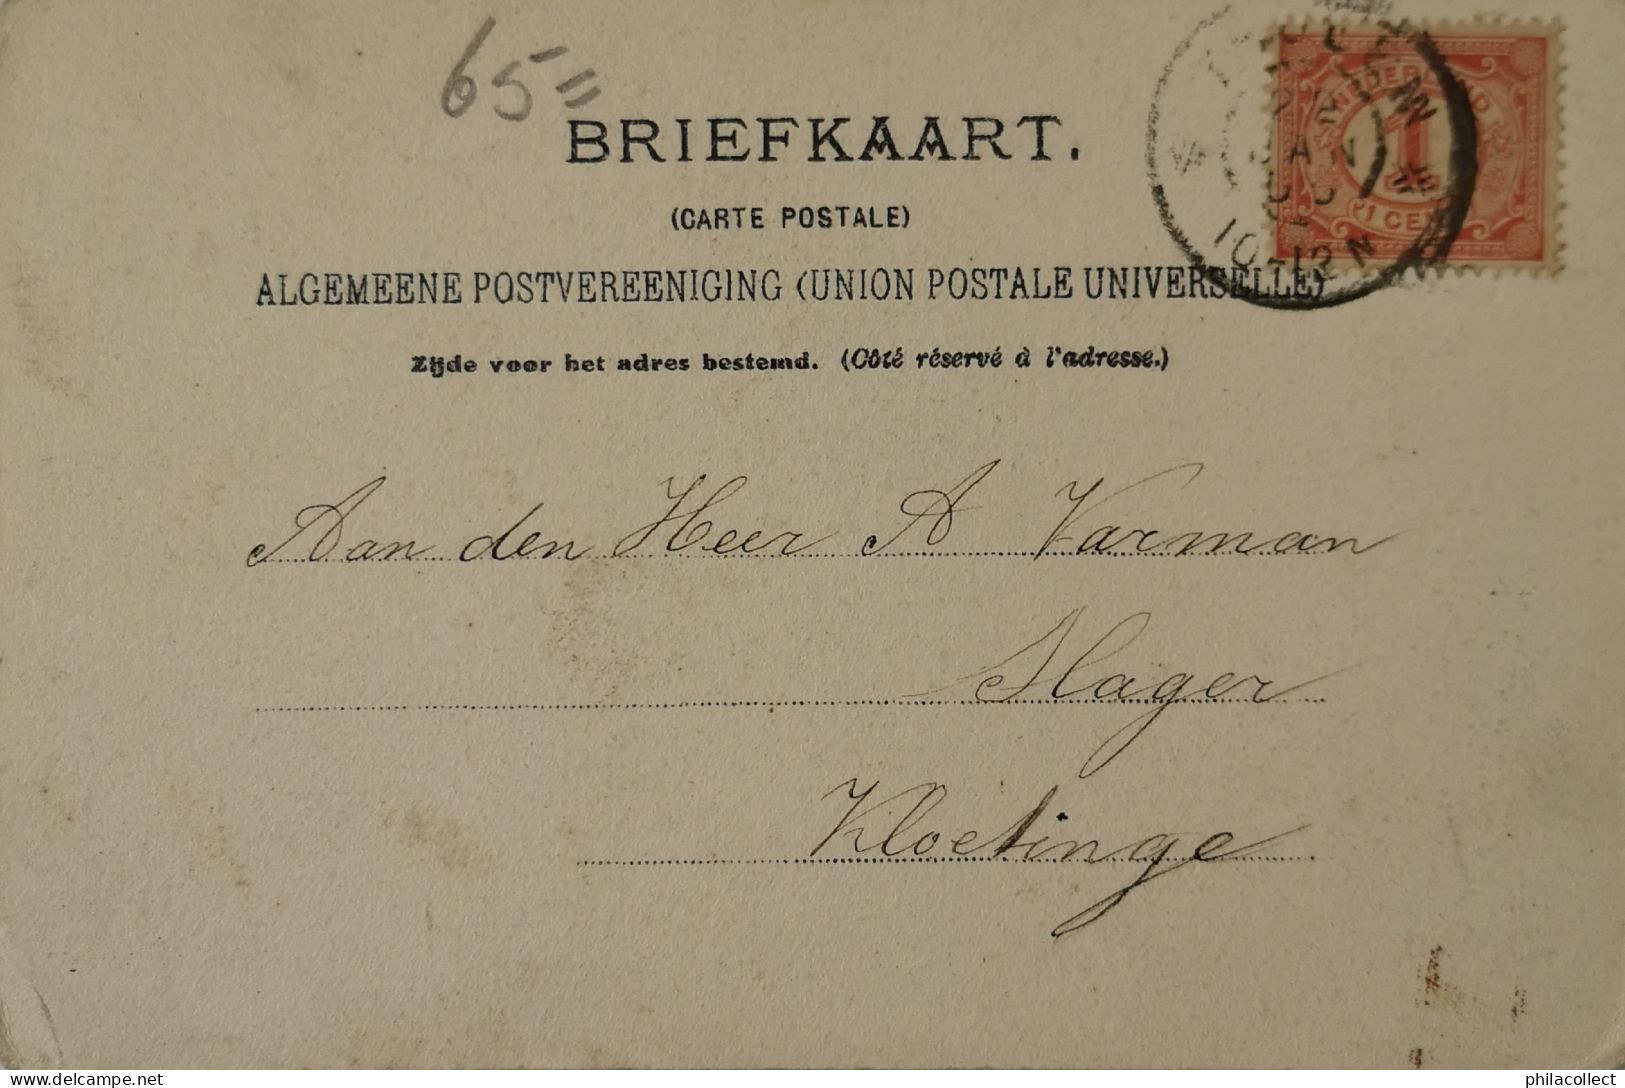 65=
BRIEFKAART.
(CARTE POSTALE)
ALGEMEENE POSTVEREENIGING (UNION POSTALE UNIVERSELLE)
Zijde voor het adres bestemd. (Côté réservé à l'adresse.)
NEDERLAND
1
1 CENT
JAN
10-12 N
Aan den Heer A Varman
Slager
Kloetinge
philacollect